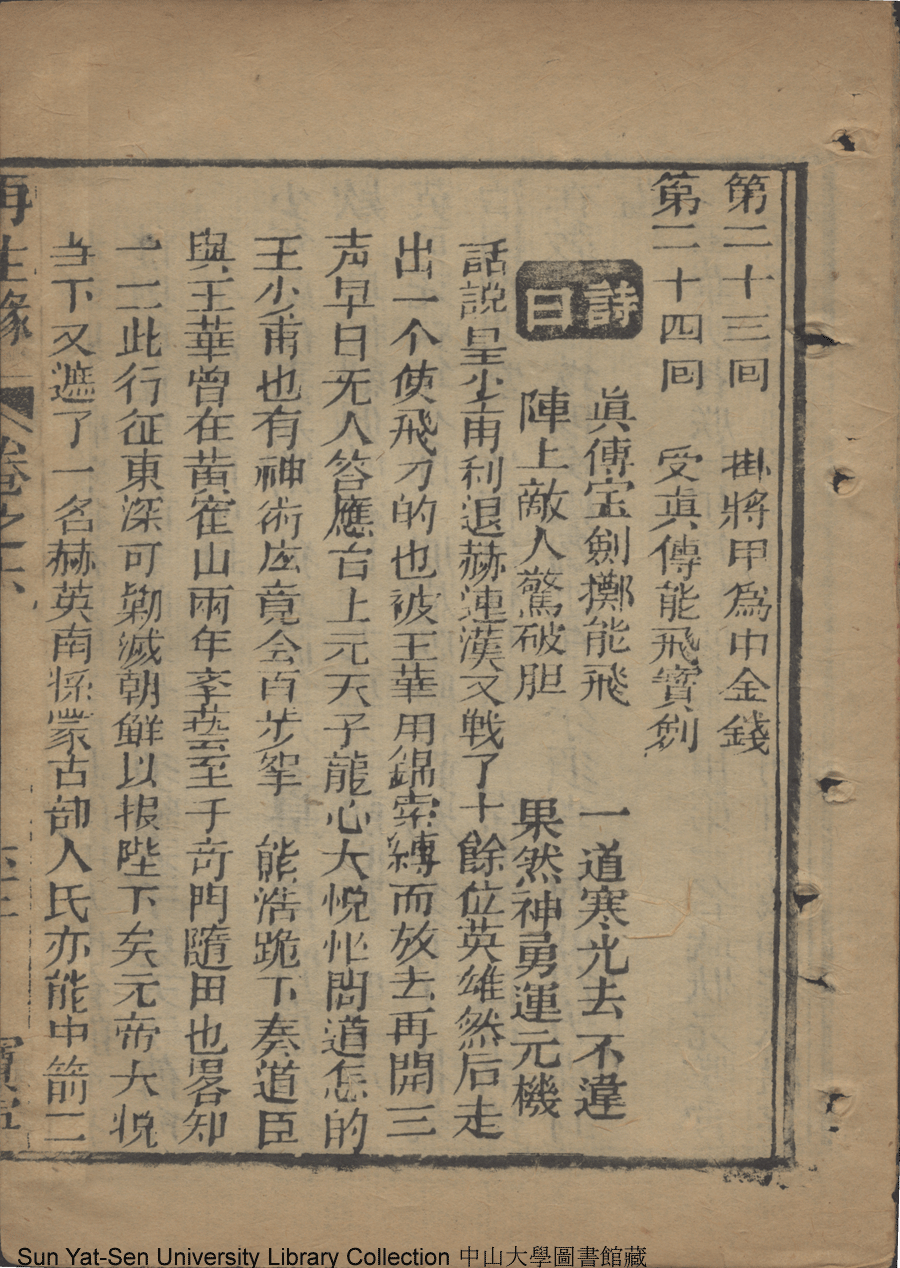 第二十三回 掛將甲為中金錢
第二十四回 受真傳能飛寳劍
詩曰
真傳宝劍擲能飛 一道寒光去不違
陣上敵人驚破胆 果然神勇運元機
話說皇少甫利退赫連漢又戰了十餘位英雄然后走
出一个使飛刀的也被王華用錦索縛而放去再開三
声早日无人答應台上元天子龍心大悅忙問道怎的
王少甫也有神術庅竟会百步拏 熊浩跪下奏道臣
與王華曾在黄寉山兩年李藝至于奇門隨田也畧知
一二此行征東深可勦滅朝鮮以报陛下矣元帝大悅
当下又遮了一名赫英南係蒙古部人氏亦能中箭二
再生緣 卷之六